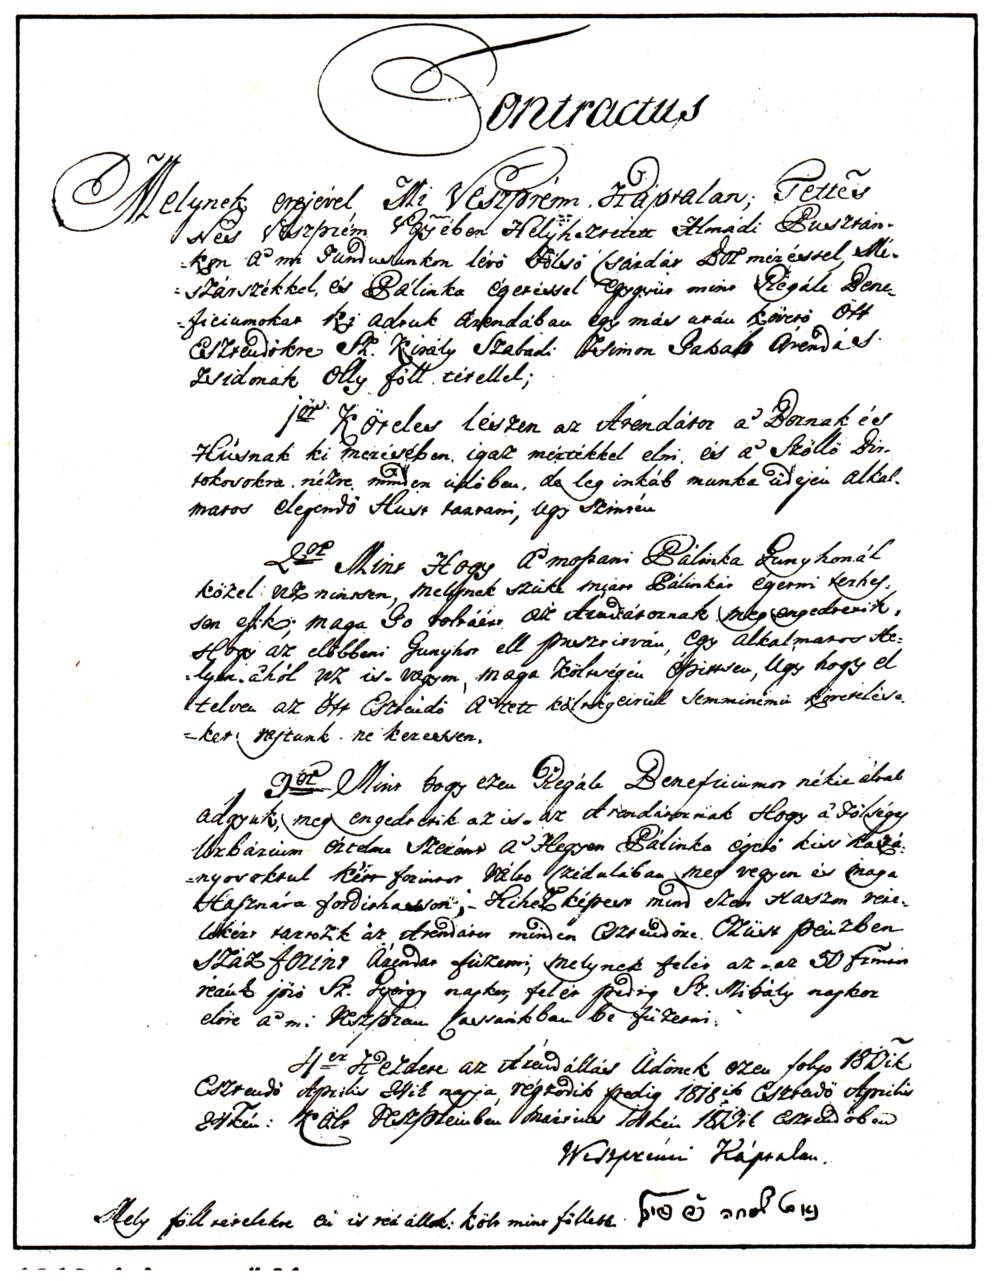 Contractus
Melynek erejével Mi Veszprém Káptalan; Tettes
Nes Veszprém Vgyében Helyheztetett Almádi Pusztán-
-kon a' mi Fundusunkon lévő Fölső Csárdát Bor méréssel, Mé-
-szárszékkel, és Pálinka égetéssel egygyütt mint Regále Bene-
-ficiumokat ki adtuk Árendában egy más után követő Ött
Esztendőkre Sz. Király Szabadi Simon Jakab Árendás
Zsidónak Olly föll tétellel;
1ör Köteles lészen az Árendátor a' Bornak és
Húsnak ki mérésében igaz mértékkel élni, és a' Szőllő Bir-
tokosokra nézve minden időben, de leg inkáb munka üdején alkal-
matos elegendő Hust tartani, ugy szintén
2or Mint Hogy a' mostani Pálinka Gunyhonál
közel viz nintsen, melynek szüke miatt Pálinkát égetni terhes-
sen esik; maga Jo voltáért az Árendátornak meg engedtetik,
Hogy az előbbeni Gunyhot ell pusztitván, egy alkalmatos He-
-lyen a'hól viz is vagyon, maga költségén épittsen, Ugy hogy el
telvén az Ött Esztendő a' tett költségeirül semminémü követelése-
-ket rajtunk ne kezessen.
3or Mint hogy ezen Regále Beneficiumot nékie által
adgyuk, meg engedtetik az is az Árendátornak Hogy a' Fölségy
Urbárium értelme szerént a' Hegyen Pálinka égető kiss kazá-
-nyosoktul két forintot Váltó Czédulában meg vegyen és maga
Hasznára fordithasson; Kihez képest mind ezen Haszon véte-
lökért tartozik az Árendátor minden Esztendőre Ezüst pénzben
száz forint Árendát fizetni; melynek felét az az 50 frintot
reánk jövő Sz. György napkor, felét pedig Sz. Mihály napkor
előre a' mi Veszprém Cassánkban be fizetni.
4er Kezdete az Árendállás Üdőnek ezen folyo
Esztendő Április 24ik napja, végződik pedig 1818ik Esztendő Április
24kén: Költ Veszprémben Március 14kén Esztendőben
Weszprémi Káptalan.
Mely föll tételekre én is reá állok: költ mint föllebb.